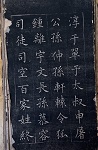 淳于單于太叔申屠
公孫仲孫軒轅令狐
鍾離宇文長孫慕容
司徒司空百家姓終